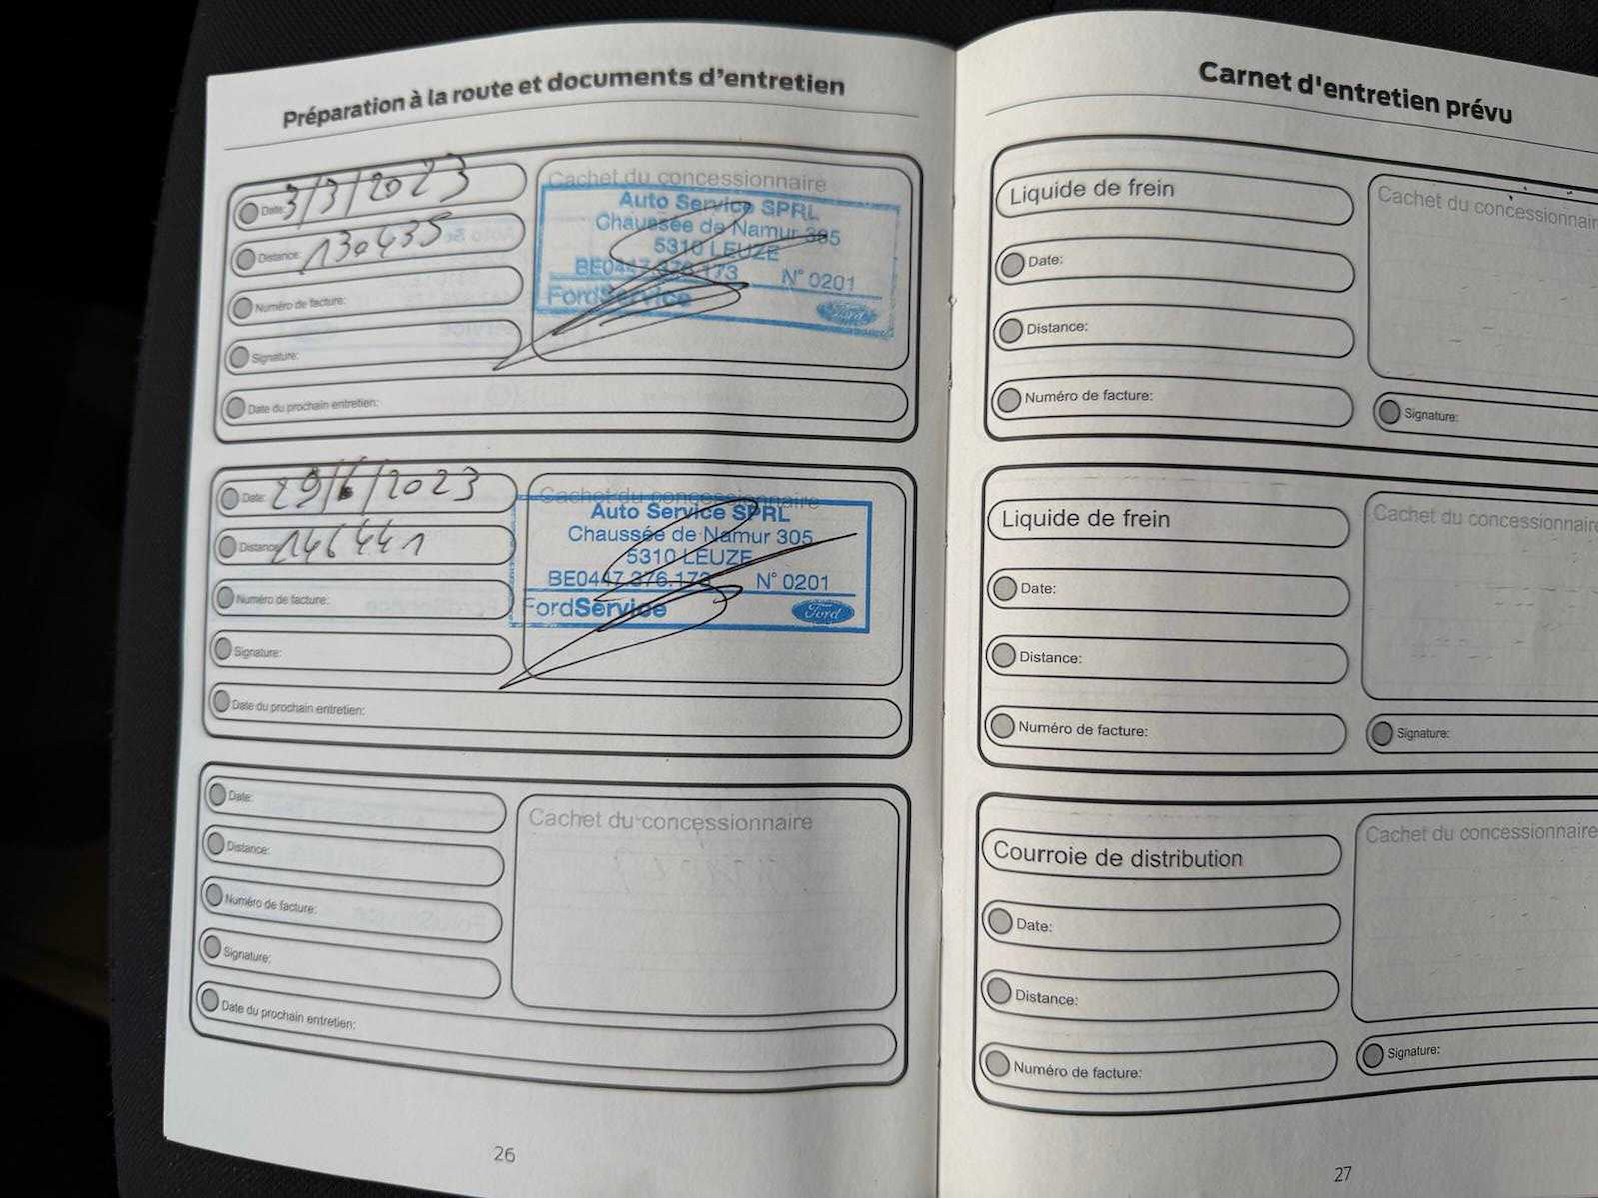 Préparation à la route et documents d'entretien
Date: 3/3/2023
Distance: 130435
Numéro de facture:
Signature:
Date du prochain entretien:
Cachet du concessionnaire
Auto Service SPRL
Chaussée de Namur 305
5310 LEUZE
BE0447.376.173 N° 0201
FordService
Ford
Date: 29/6/2023
Distance: 146441
Numéro de facture:
Signature:
Date du prochain entretien:
Cachet du concessionnaire
Auto Service SPRL
Chaussée de Namur 305
5310 LEUZE
BE0447.376.173 N° 0201
FordService
Ford
Date:
Distance:
Numéro de facture:
Signature:
Date du prochain entretien:
Cachet du concessionnaire
26
Carnet d'entretien prévu
Liquide de frein
Date:
Distance:
Numéro de facture:
Cachet du concessionnair
Signature:
Liquide de frein
Date:
Distance:
Numéro de facture:
Cachet du concessionnaire
Signature:
Courroie de distribution
Date:
Distance:
Numéro de facture:
Cachet du concessionnaire
Signature:
27